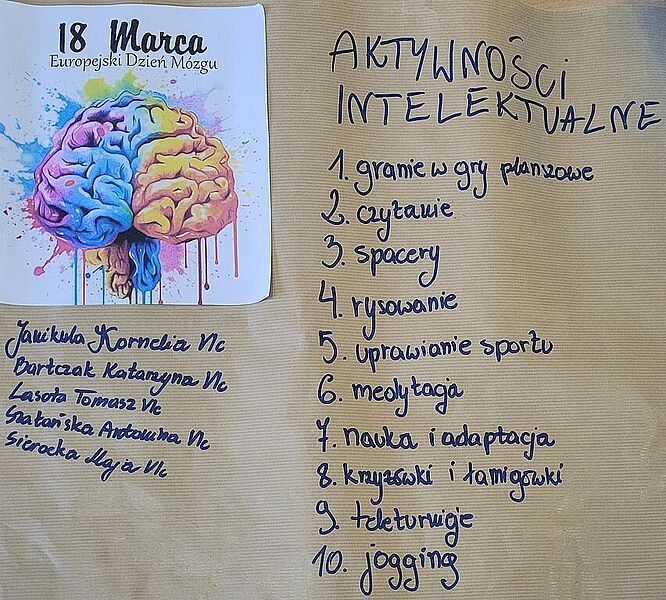 18 Marca
Europejski Dzień Mózgu
Janikula Kornelia VIc
Bartczak Katarzyna VIc
Lasota Tomasz VIc
Szatańska Antonina VIc
Sierocka Maja VIc
AKTYWNOŚCI
INTELEKTUALNE
1. granie w gry planszowe
2. czytanie
3. spacery
4. rysowanie
5. uprawianie sportu
6. medytacja
7. nauka i adaptacja
8. krzyżówki i łamigówki
9. teleturnieje
10. jogging